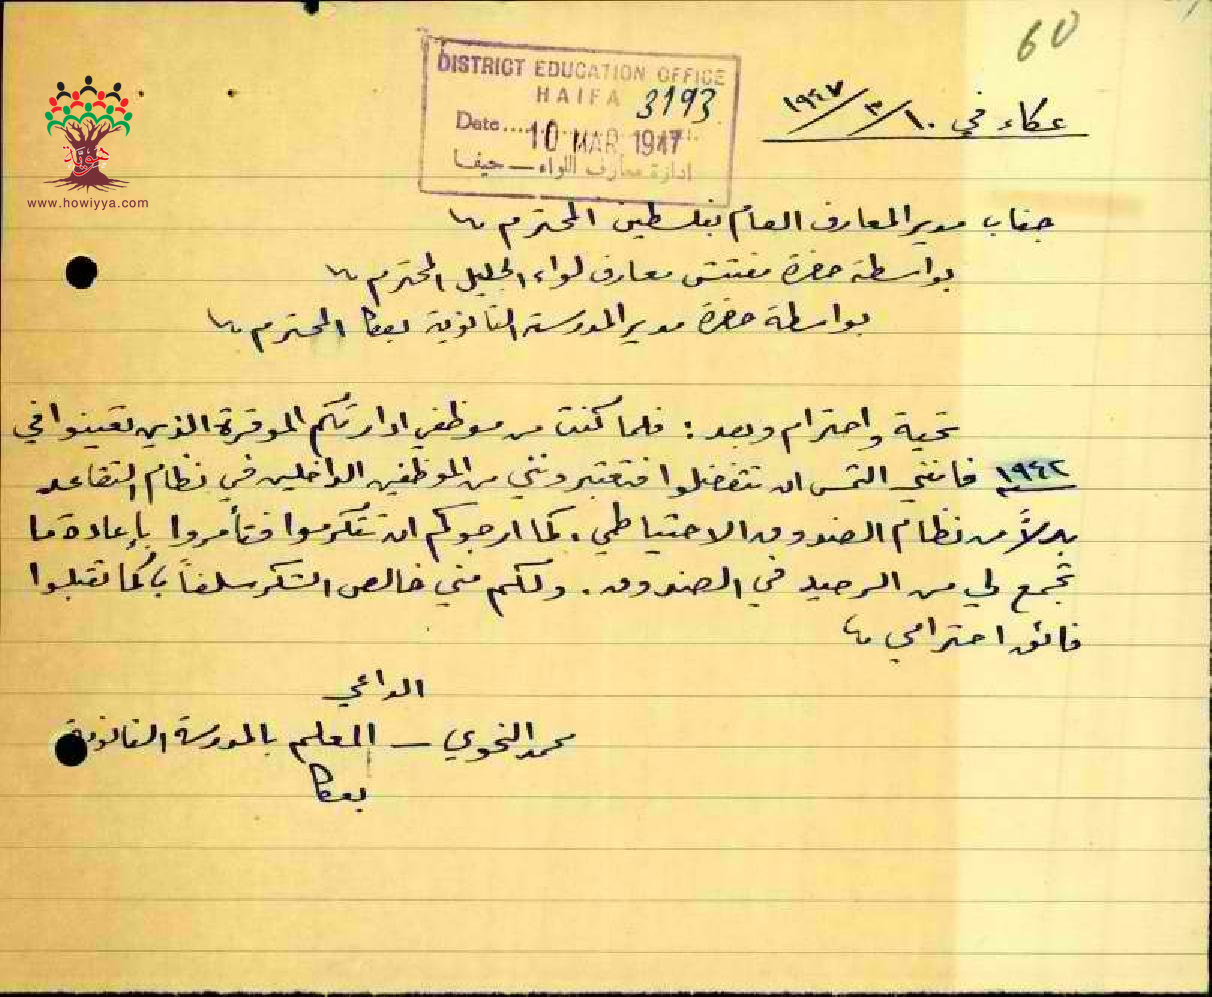 60
DISTRICT EDUCATION OFFICE
HAIFA 3193
Date.... 10 MAR 1947
ادارة معارف اللواء — حيفا
عكاء في ١٠/٣/١٩٤٧
هوية
www.howiyya.com
جناب مدير المعارف العام بفلسطين المحترم
بواسطة حضرة مفتش معارف لواء الجليل المحترم
بواسطة حضرة مدير المدرسة الثانوية بعكا المحترم
تحية واحترام وبعد : فلما كنت من موظفي ادارتكم الموقرة الذين تعينوا في
سنة ١٩٤٢ فانني التمس ان تتفضلوا فتعتبرونني من الموظفين الداخلين في نظام التقاعد
بدلاً من نظام الصندوق الاحتياطي . كما ارجوكم ان تتكرموا فتأمروا بإعادة ما
تجمع لي من الرصيد في الصندوق . ولكم مني خالص الشكر سلفاً كما تقبلوا
فائق احترامي
الداعي
محمد النحوي — المعلم بالمدرسة الثانوية
بعكا